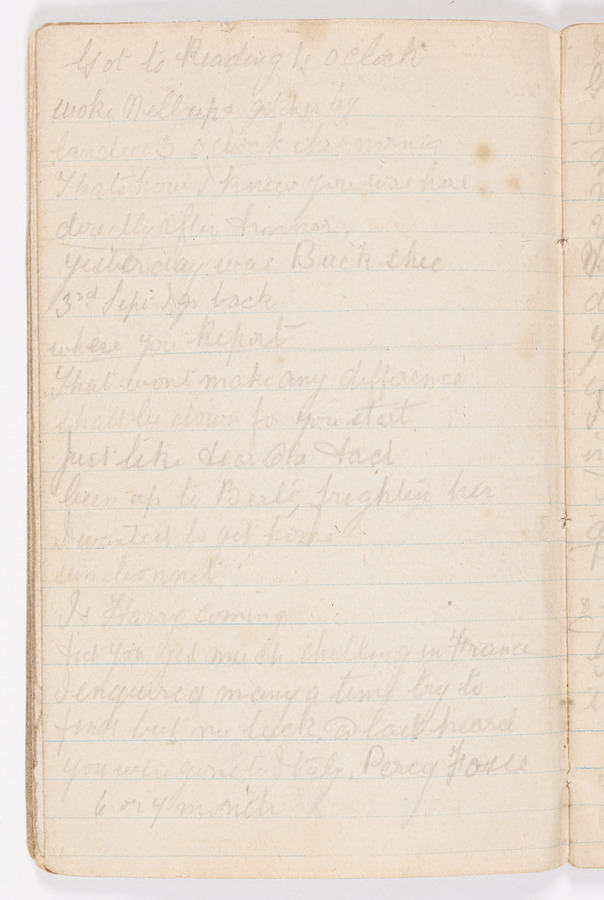 Got to Reading 1. oclock
woke Nell up & got her by
3 oclock this morning
Thats how I knew you was here
directly after
yesterday was Buck shee
3rd Sept I go back
where you Report
That wont make any difference
shall be down for you start
Just like dear Old Dad
been up to frightin her
I wanted to get home
sun bonnet
Is Harry coming
Did you get much shelling in France
I enquired many a time try to
find but no luck, at last heard
you were gone to Italy, Percy
6 or 7 month